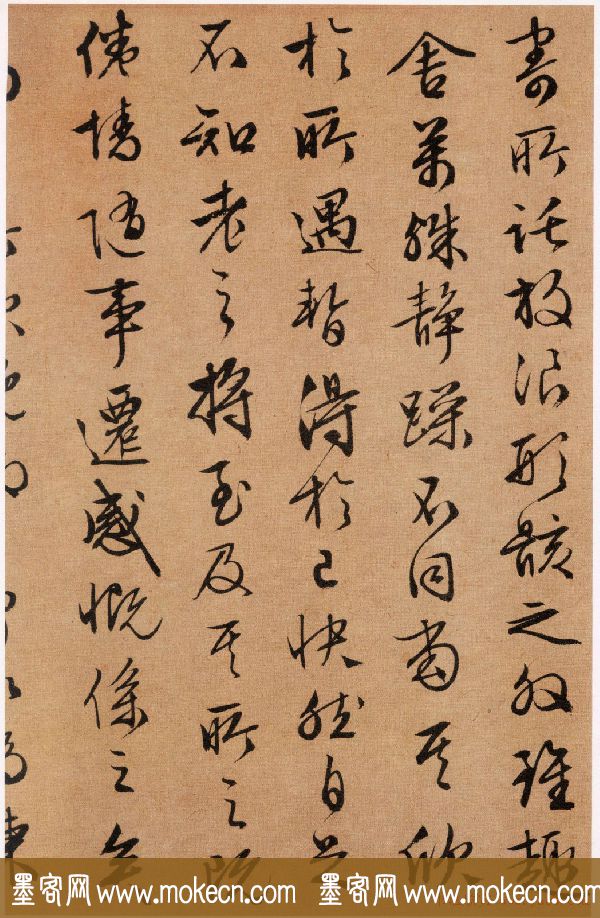 寄所託放浪形骸之外雖趣
舍萬殊静躁不同當其欣
於所遇暫得於己快然自足
不知老之將至及其所之既
倦情隨事遷感慨係之矣
墨客网 www.mokecn.com 墨客网 www.mokecn.com